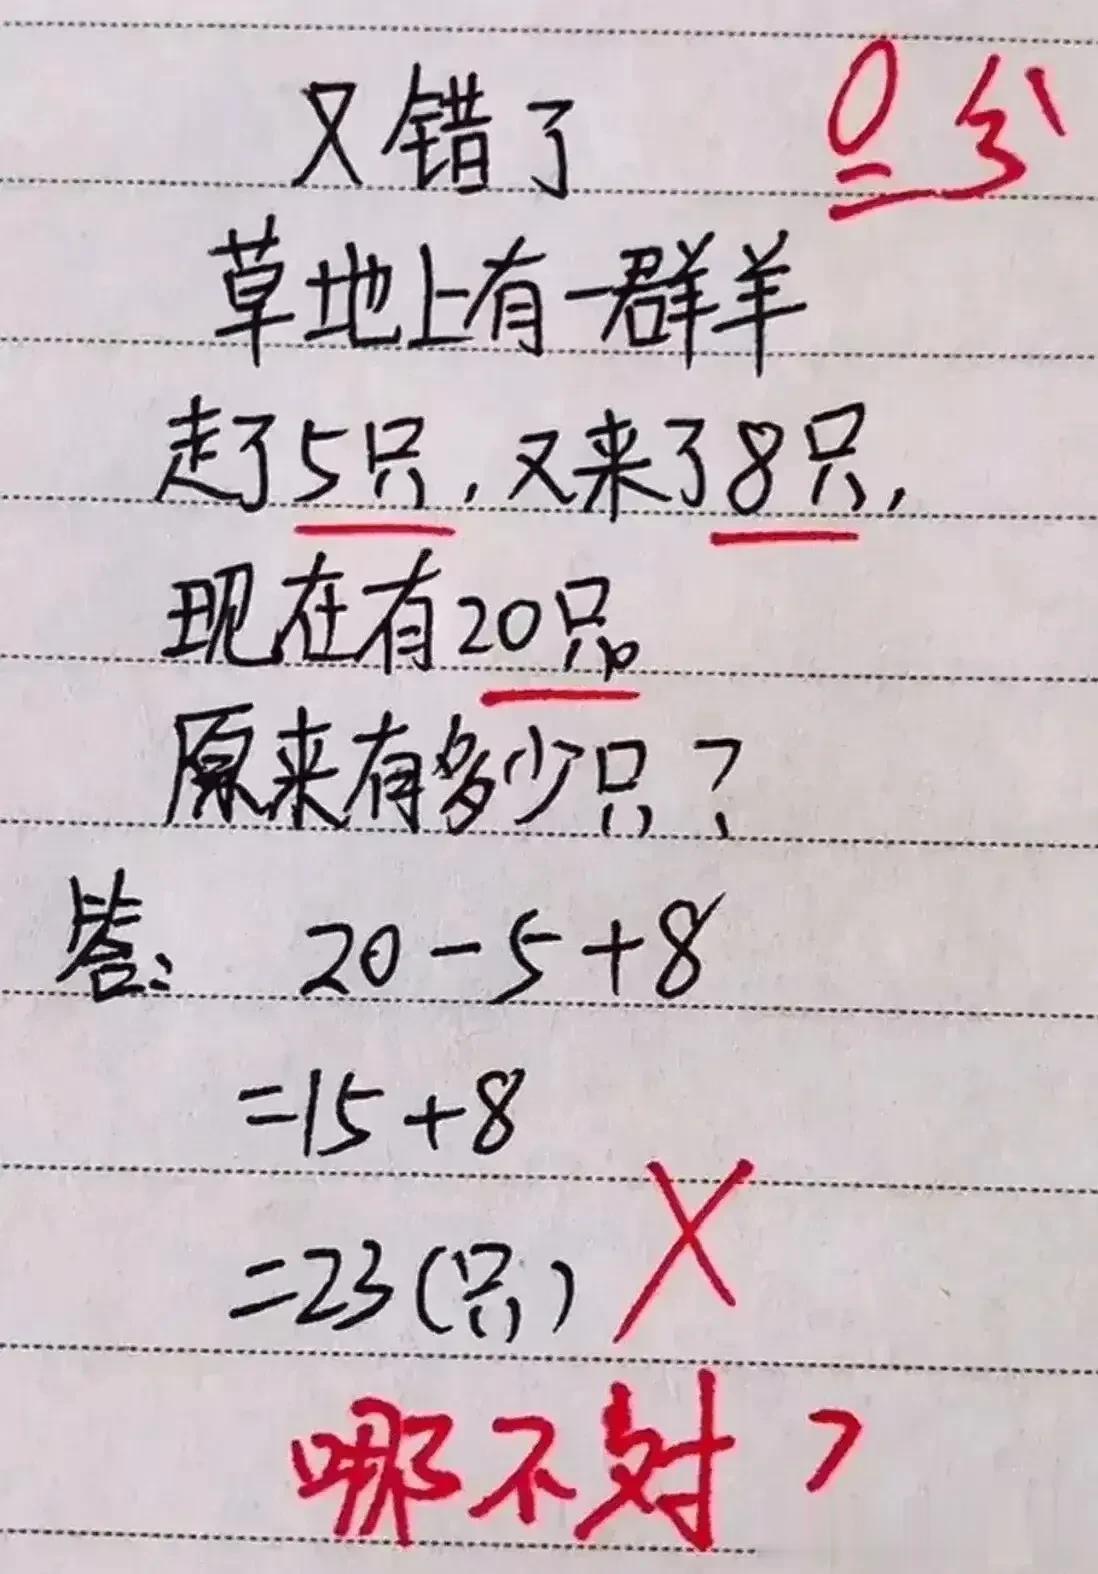 又错了 0分
草地上有一群羊
走了5只,又来了8只,
现在有20只。
原来有多少只?
答: 20-5+8
=15+8
=23(只) ×
哪不对?